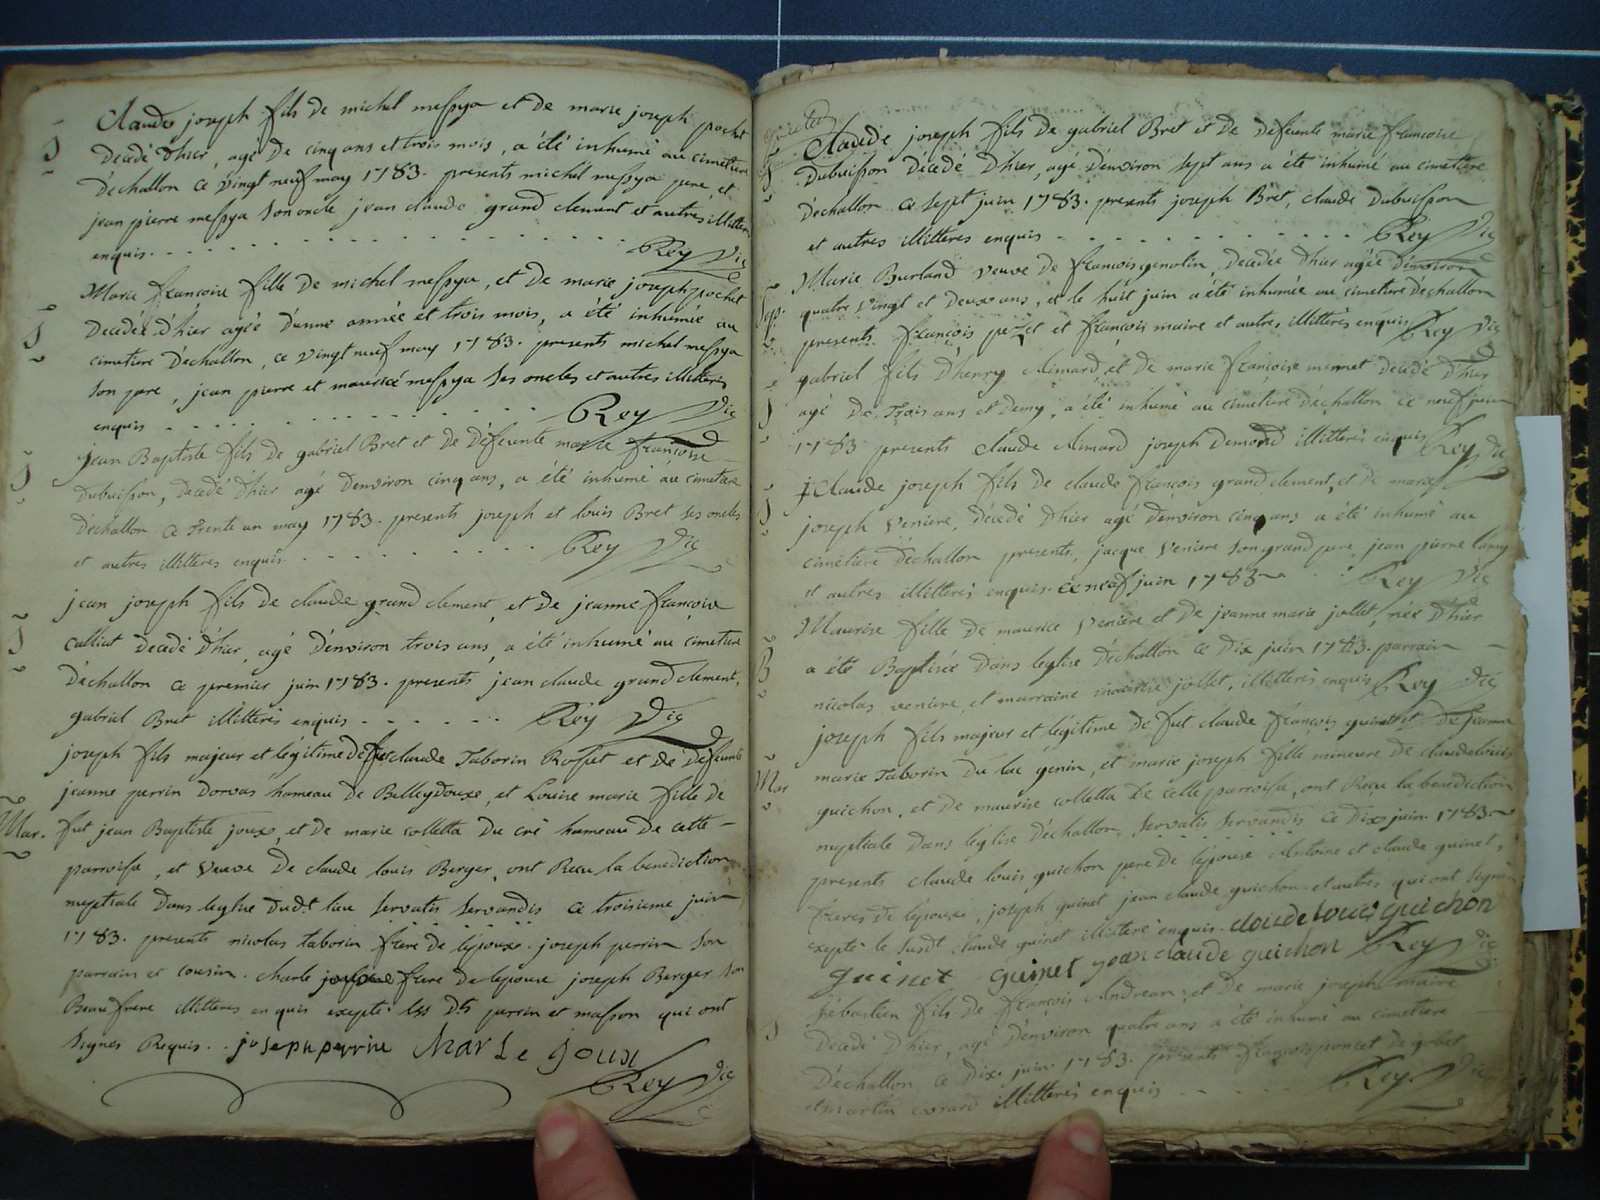 Claude joseph fils de michel messya et de marie joseph pochet
S
decedé d'hier, agé de cinq ans et trois mois, a été inhumé au cimetiere
d'echallon ce vingt neuf may 1783. presents michel messya pere et
jean pierre messya son oncle jean claude grand clement et autres illitterés
enquis. Rey Vic
Marie françoise fille de michel messya, et de marie joseph pochet
S
decedée d'hier agée d'une année et trois mois, a été inhumée au
cimetiere d'echallon, ce vingt neuf may 1783. presents michel messya
son pere, jean pierre et maurice messya ses oncles et autres illitterés
enquis Rey Vic
jean Baptiste fils de gabriel Bret et de defeunte marie françoise
S
Dubuisson, decedé d'hier agé d'environ cinq ans, a été inhumé au cimetiere
d'echallon ce trente un may 1783. presents joseph et louis Bret ses oncles
et autres illitterés enquis Rey Vic
jean joseph fils de claude grand clement, et de jeanne françoise
S
Culliat decedé d'hier, agé d'environ trois ans, a été inhumé au cimetiere
d'echallon ce premier juin 1783. presents jean claude grand clement,
gabriel Bret illitterés enquis Rey Vic
joseph fils majeur et légitime de feu claude Taborin Rosset et de defeunte
jeanne perrin dorvas hameau de Belleydoux, et Louise marie fille de
Mar. fut jean Baptiste joux, et de marie colletta du cré hameau de cette
parroisse, et veuve de claude louis Berger, ont Recu la benediction
nuptiale dans leglise dudt lieu servatis servandis ce troisieme juin
1783. presents nicolas taborin frere de l'epoux. joseph perrin son
parrain et cousin. charle frere de lepouse joseph Berger son
Beaufrere illitteres enquis exepté les dts perrin et masson qui ont
signes Requis. joseph perrin Marle Joux
Rey Vic
Claude joseph fils de gabriel Bret et de defeunte marie françoise
S
Dubuisson decedé d'hier, agé d'environ sept ans a été inhumé au cimetiere
d'echallon ce sept juin 1783. presents joseph Bret, claude Dubuisson
et autres illitterés enquis Rey Vic
Marie Burland veuve de françois genolin, decedée d'hier agée d'environ
Sep. quatre vingt et deux ans, et le huit juin a été inhumée au cimetiere d'echallon
presents françois et françois maire et autres illitterés enquis Rey Vic
gabriel fils d'henry Aimard et de marie françoise decedé d'hier
S
agé de trois ans et demy, a été inhumé au cimetiere d'echallon ce neuf juin
1783 presents claude Aimard joseph Demond illitterés enquis Rey Vic
Claude joseph fils de claude françois grand clement, et de marie
S
joseph veniere, decedé d'hier agé d'environ cinq ans a été inhumé au
cimetiere d'echallon presents, jacque veniere son grand pere, jean pierre
et autres illitterés enquis. ce neuf juin 1783 Rey Vic
Maurise fille de maurice veniere et de jeanne marie jollet, née d'hier
B
a été Baptisée dans leglise d'echallon ce dix juin 1783. parrain
nicolas veniere, et marraine maurise jollet, illitterés enquis Rey Vic
joseph fils majeur et légitime de fut claude françois guinet et de jeanne
marie Taborin du lac genin, et marie joseph fille mineure de claude louis
Mar
guichon, et de maurise colletta de cette parroisse, ont Recu la benediction
nuptiale dans léglise d'echallon, servatis servandis ce dix juin 1783
presents claude louis guichon pere de lepouse Antoine et claude guinet,
freres de lepoux, joseph guinet jean claude guichon et autres qui ont signés
exepté le susdt claude guinet illitéré enquis. claude louis guichon
guinet guinet jean claude guichon Rey Vic
Sébastien fils de françois Andrean, et de marie joseph maire
S
decedé d'hier, agé d'environ quatre ans a été inhumé au cimetiere
d'echallon ce dix juin 1783. presents françois poncet
et martin evrard illitterés enquis Rey Vic